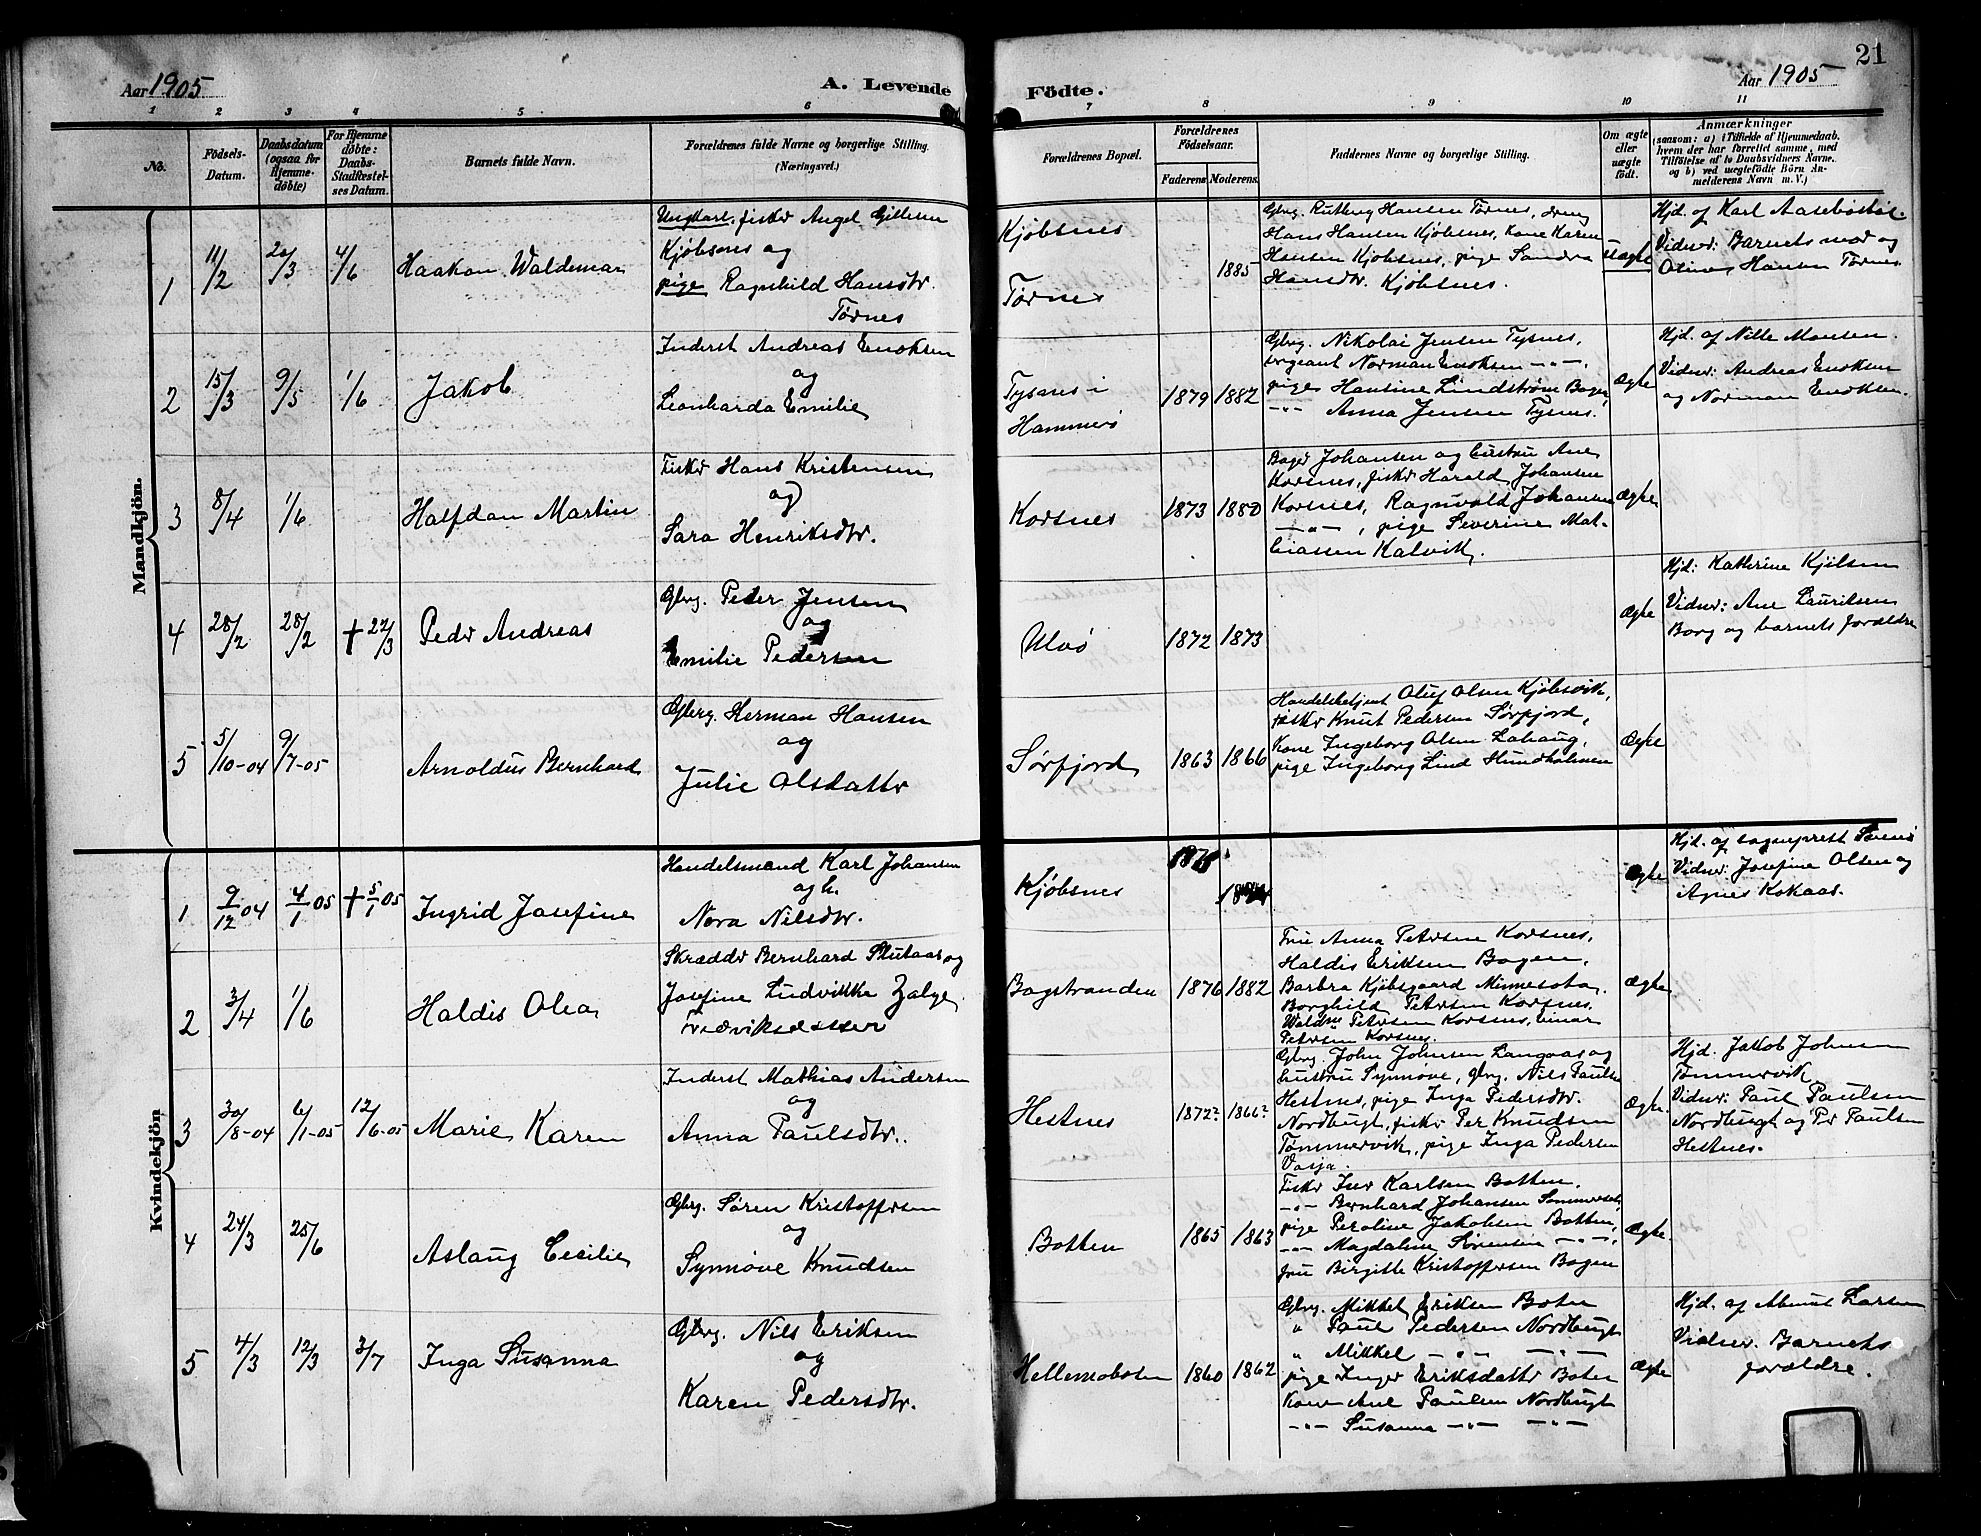 21
Aar 1905
A. Levende
Födte.
Aar 1905
1 2 3 4 5 6 7 8 9 10 11
No.
Födsels-
Datum.
Daabsdatum
(ogsaa for
Hjemme-
döbte)
For Hjemme
döbte:
Daabs-
Stadfæstel-
ses Datum.
Barnets fulde Navn.
Forældrenes fulde Navne og borgerlige Stilling.
(Næringsvei.)
Forældrenes Bopæl.
Forældrenes
Födselsaar.
Faderens. Moderens.
Faddernes Navne og borgerlige Stilling.
Om ægte
eller
uægte
födt.
Anmærkninger
(saasom: a) i Tilfælde af Hjemmedaab.
hvem der har forrettet samme, med
Tilföielse af to Daabsvidners Navne.
og b) ved uægtefödte Börn An-
melderens Navn m. V.)
Mandkjön.
1
11/2
20/3
4/6
Haakon Waldemar
Ungkarl, fisker Angel Gillesen
Kjøbsnes og
pige Ragnhild Hansdtr.
Tørnes
Kjøbsnes
Tørnes
1885
Gbrg. Hansen Tørnes, dreng
Hans Hansen Kjøbsnes, Kone Karen
Hansen Kjøbsnes, pige Sandra
Hansdtr. Kjøbsnes.
Uægte
Hjd. af Karl
Vidner: Barnets mor og
Hansen Tørnes
2
15/3
9/5
1/6
Jakob
Inderst Andreas Enoksen
og
Leonharda Emilie
Tysnes i
Hammerø
1879 1882
Gbrg. Nikolai Jensen Tysnes,
sergeant Norman Enoksen -"-,
pige Hansine Lindstrøm Bogen,
-"- Anna Jensen Tysnes.
Ægte
Hjd. af Nille Monsen.
Vidner: Andreas Enoksen
og Norman Enoksen.
3
8/4
1/6
Halfdan Martin
Fisker Hans Kristensen
og
Sara Henriksdtr.
Korsnes
1873 1880
Johansen og hustru Ane
Korsnes, fisker Harald Johansen
Korsnes, Ragnvald Johansen
-"-, pige Severine Mat-
hiassen Kalvik.
Ægte
4
28/2
28/2
† 22/3
Peder Andreas
Gbrg. Peder Jensen
og
Emilie Pedersen
Ulvø
1872 1873
Ægte
Hjd: Katherine Kjilsen
Vidner: Ane Lauritsen
Borg og barnets forældre
5
5/10-04
9/7-05
Arnoldus Bernhard
Gbrg. Herman Hansen
og
Julie Olsdatter
Sørfjord
1863 1866
Handelsbetjent Oluf Olsen Kjøbsvik,
fisker Knut Pedersen Sørfjord,
Kone Ingeborg Olsen Lahaug,
pige Ingeborg Lind Hundholmen
Ægte
Kvindekjön
1
9/12 04
4/1 05
† 5/1 05
Ingrid Josefine
Handelsmand Karl Johansen
og h.
Nora Nilsdtr.
Kjøbsnes
Ægte
Hjd. af sogneprest
Vidner: Josefine Olsen og
Agnes Kokaas.
2
3/4
1/6
Haldis Olea
Skrædder Bernhard Slutaas og
Josefine Ludvikke
Bogstranden
1876 1882
Frue Anna Petersen Korsnes,
Haldis Eriksen Bogen,
Barbra Kjøbsgaard Minnesota,
Borghild Petersen Korsnes,
Petersen Korsnes, Einar
Petersen Korsnes.
Ægte
3
30/8-04
6/1-05
12/6-05
Marie Karen
Inderst Mathias Andersen
og
Anna Paulsdtr.
Hestnes
1872? 1866?
Gbrg. John Johnsen Langaas og
hustru Synnøve, gbrg. Nils Paulsen
Hestnes, pige Inga Pedersdtr.
Nordbugt, fisker Per Knudsen
Tømmervik, pige Inga Pedersen
Vasja.
Ægte.
Hjd. Jakob Johnsen
Tømmervik
Vidner: Paul Paulsen
Nordbugt og Per Paulsen
Hestnes.
4
24/3
25/6
Aslaug Cecilie
Gbrg. Søren Kristoffersen
og
Synnøve Knudsen
Botten
1865 1863
Fisker Iver Karlsen Botten.
-"- Bernhard Johansen Sommerset,
pige Peroline Jakobsen Botten,
-"- Magdalene Sørensen -"-,
frue Birgitte Kristoffersen Bogen
Ægte.
5
4/3
12/3
3/7
Inga Susanna
Gbrg. Nils Eriksen
og
Karen Pedersdtr.
Hellemoboten
1860 1862
Gbrg. Mikkel Eriksen Boten
" Paul Pedersen Nordbugt
" Mikkel -"- -"-
pige Inger Eriksdatter Boten
Kone Ane Paulsen Nordbugt
-"- Susanna -"- -"-
Ægte
Hjd. af Larsen
Vidner. Barnets
forældre.